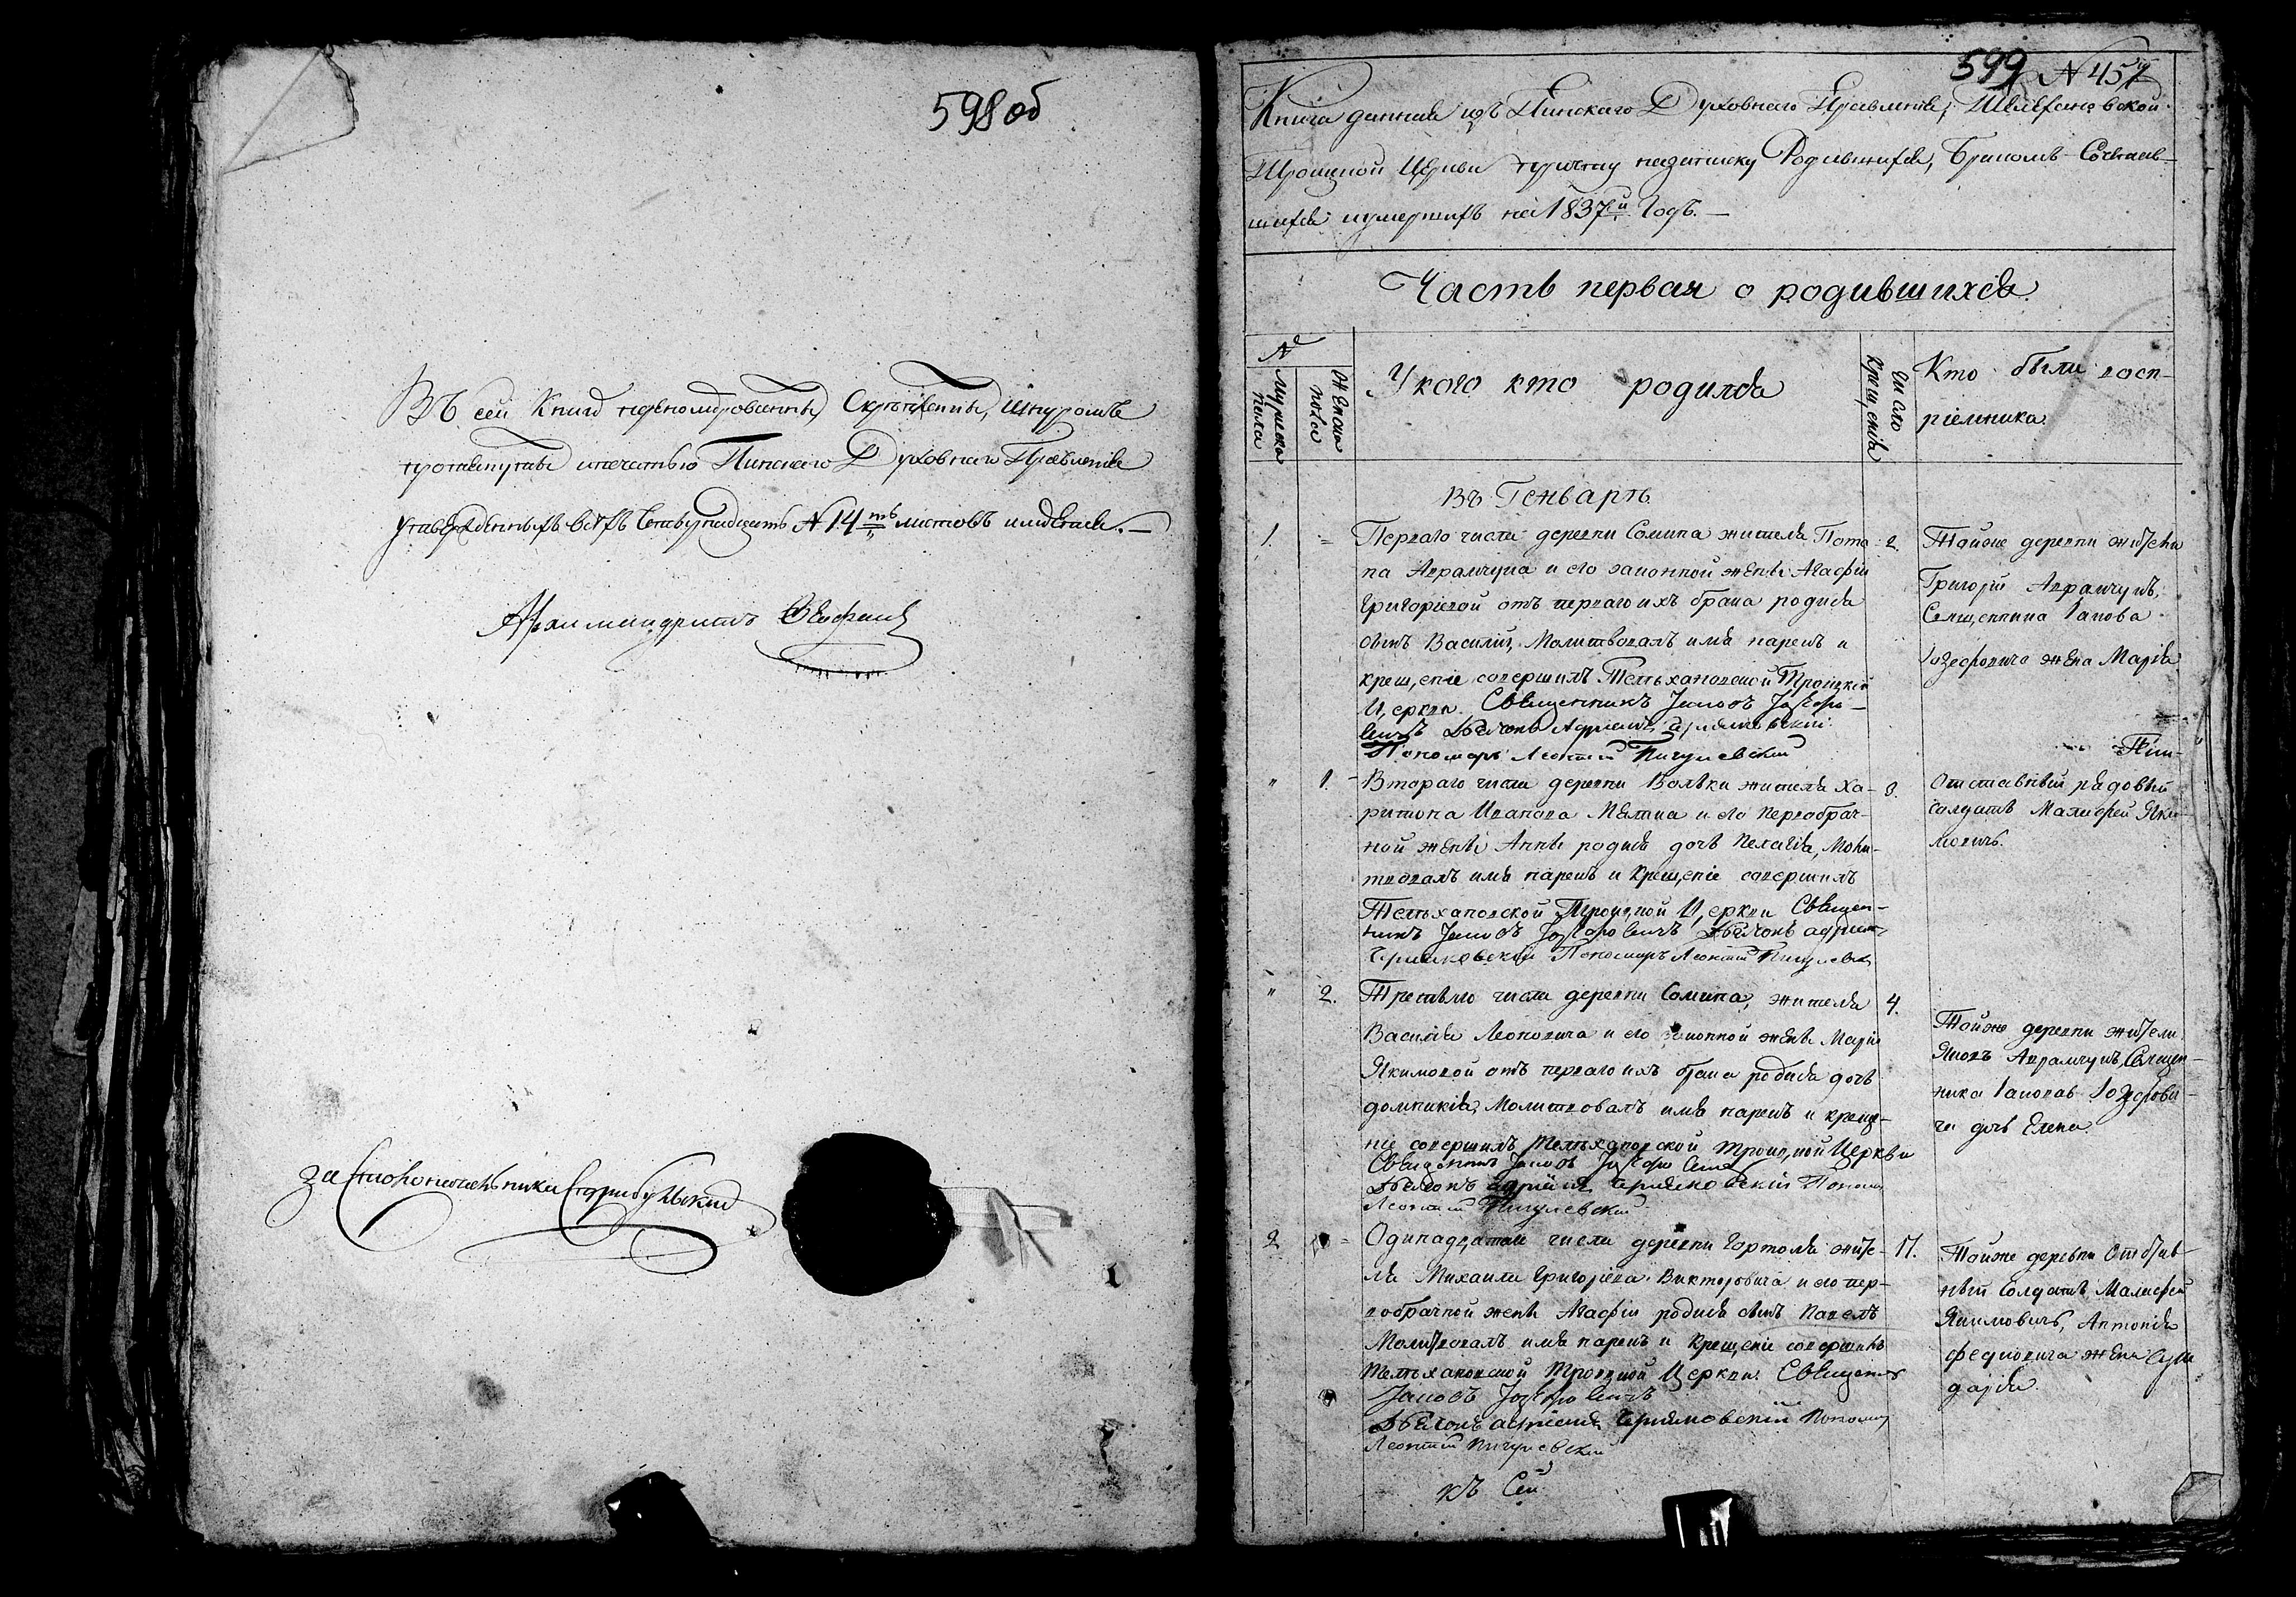 598 об
Въ сей Книгѣ пронумерованныхъ, Скрѣпленныхъ, Шнуромъ
протянутыхъ и печатью Пинскаго Духовнаго Правленія
утвержденныхъ всѣхъ Четырнадцать № 14ть листовъ имѣется.—
Архимандритъ
За Столоначальника
599 № 457
Книга данная изъ Пинскаго Духовнаго Правленія, Телехановской
Троицкой Церкви причту на записку Родившихся, Бракомъ Сочетав-
шихся и умершихъ на 1837й Годъ.—
Часть первая о родившихся
№
Мужеска пола
Женска пола
У кого кто родился
Число крещенія
Кто были восп-
ріемника.
Въ Генварѣ
1. = Перваго числа деревни Сомина жителя Пота- 2.
па Аврамчука и его законной женѣ Агафіи
Григоріевой отъ перваго ихъ брака родися
сынъ Василій, Молитвовалъ имя нарекъ и
крещеніе совершилъ Телѣхановской Троицкой
Церкви. Священникъ Іаковъ Іозефо-
вичъ Дьячокъ Адріанъ Черняковскій
Пономарь Леонтій Пигулевскій
Тойже деревни жители
Григорій Аврамчукъ,
Священника Іакова
Іозефовича жена Марія
" 1. Втораго числа деревни Вольки жителя Ха- 3.
ритона Иванова и его первобрач-
ной женѣ Аннѣ родися дочь Пелагія, Моли-
твовалъ имя нарекъ и Крещеніе совершилъ
Телѣхановской Троицкой Церкви Священ-
никъ Іаковъ Іозефовичъ Дьячокъ Адріанъ
Черняковскій Пономарь Леонтій Пигулевскій
Отставный рядовый
Солдатъ Малафей Яки-
мовичъ.
" 2. Третьяго числа деревни Сомина, жителя 4.
Василія Леоновича и его законной женѣ Маріи
Якимовой отъ перваго ихъ брака родися дочь
Домникія, Молитвовалъ имя нарекъ и креще-
ніе совершилъ Телѣхановской Троицкой Церкви
Священникъ Іаковъ Іозефовичъ
Дьячокъ Адріанъ Черняковскій Пономарь
Леонтій Пигулевскій
Тойже деревни жители
Яковъ Аврамчукъ, Священ-
ника Іаковав Іозефови-
ча дочь Елена.
2 = Одинадцатаго числа деревни Гортоля жите- 11.
ля Михаила Григоріева Викторовича и его пер-
вобрачной женѣ Агафіи родися сынъ Павелъ
Молитвовалъ имя нарекъ и Крещеніе совершилъ
Телѣхановской Троицкой Церкви. Священникъ
Іаковъ Іозефовичъ
Дьячокъ Адріанъ Черняковскій Пономарь
Леонтій Пигулевскій
Тойже деревни Отстав-
ный Солдатъ, Малафей
Якимовичъ, Антонія
жена
къ Сей